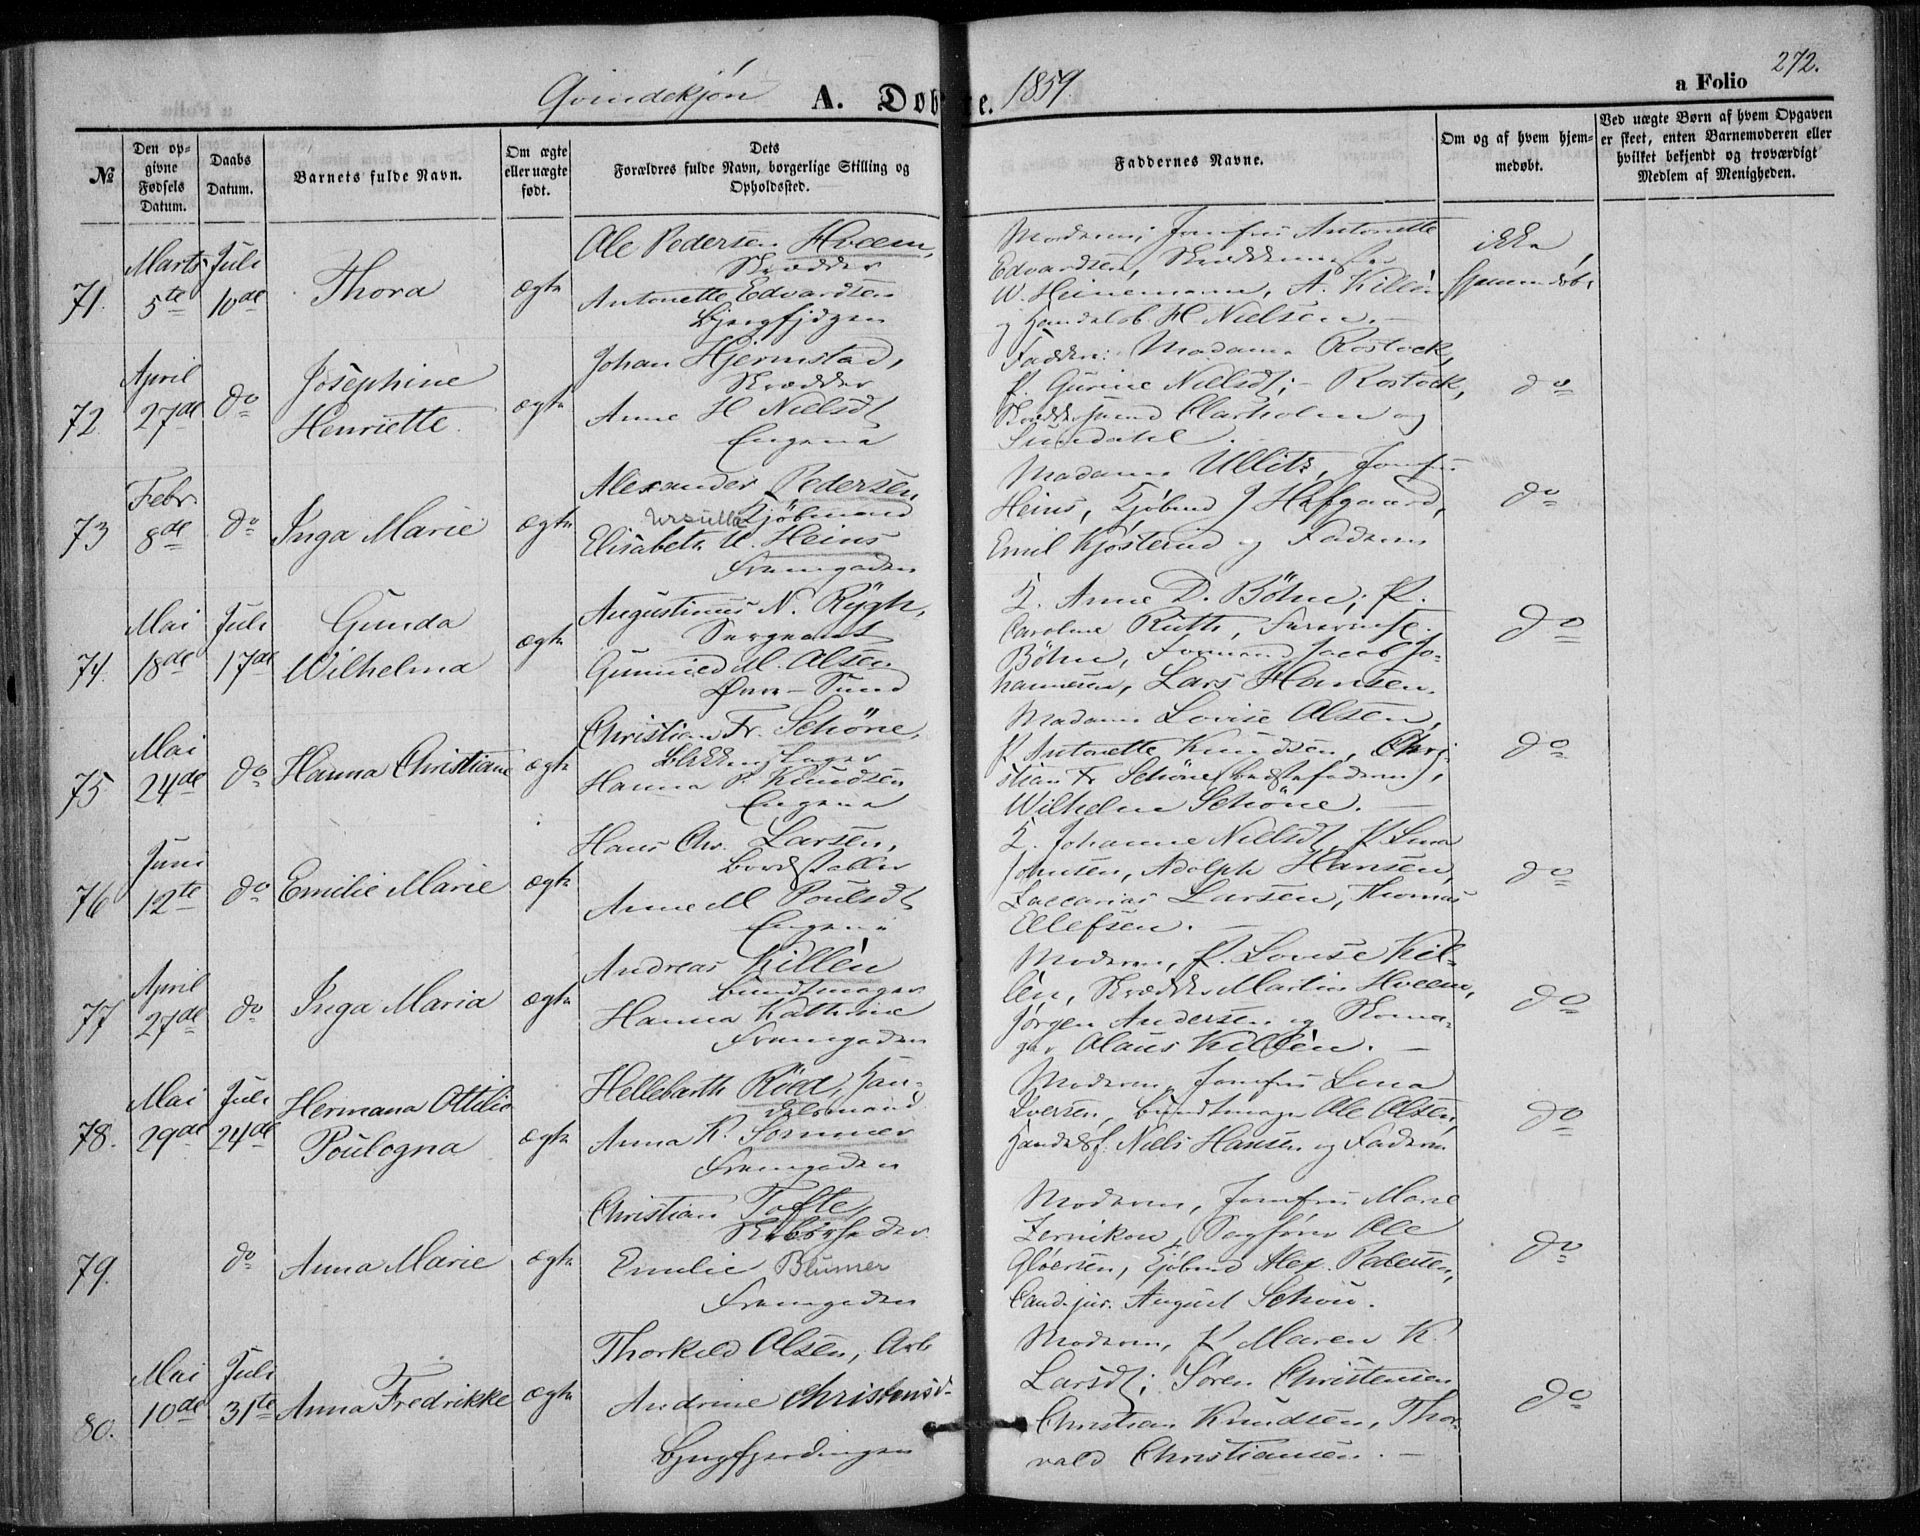 Qvindekjøn A. Døbte. 1859. a Folio 272.
№
Den opgivne Fødsels Datum.
Daabs Datum.
Barnets fulde Navn.
Om ægte eller uægte født.
Dets Forældres fulde Navn, borgerlige Stilling og Opholdssted.
Faddernes Navne.
Om og af hvem hjemmedøbt.
Ved uægte Børn af hvem Opgaven er skeet, enten Barnemoderen eller hvilket bekjendt og troværdigt Medlem af Menigheden.
71. Marts 5te Juli 10de Thora ægte
Ole Pedersen Hveem,
Skrædder
Antonette Edvardsen
Moderen; Jomfru Antonette
Edvardsen,
W. Heinemann, A. Killén
og H. Nielsen.
ikke
hjemmedøbt
72. April 27de do Josephine
Henriette. ægte
Johan Hjermstad,
Skrædder
Anne H Nielsdt
Engene
Fadder: Madame Rostock,
P. Gurine Nielsdt; Rostock,
Skræddersvend Clarholm og
Sundahl.
do
73 Febr. 8de do Inga Marie ægte
Alexander Pedersen
Ursulla Kjøbmand
Elisabeth U. Heins
Strømgaden
Madame Ullitz, Jomfru
Heins, Kjøbmd J Hofgaard,
Emil Kjøsterud og Faderen
do
74. Mai 18de Juli 17de Gunda
Wilhelma ægte
Augustinus N. Rygh,
Sergeant
Gunnild M. Olsen
Øvre-Sund
K. Anne D. Böhn; P.
Caroline Ruth,
Böhn, Formand Jacob Jo-
hannesen, Lars Hansen.
do
75 Mai 24de do Hanna Christiane ægte
Christian Fr. Schöne,
Blikkenslager
Hanna P. Knudsen
Engene
Madame Lovise Olsen,
P. Antonette Knudsen, Chri-
stian Fr Schöne (Bedstefaderen),
Wilhelm Schöne.
do
76 Juni 12te do Emilie Marie ægte
Hans Chr. Larsen,
Bordstabler
Anne M Poulsdt
Engene
K. Johanne Nielsdt, P Lina
Johnsen, Adolph Hansen,
Zaccarias Larsen, Thomas
Ellefsen.
do
77 April 27de do Inga Maria ægte
Andreas Killén
Bundtmager
Hanna Kathrine
Strømgaden
Moderen, P. Lovise Kil-
lén, Skrædder Martin Hveem,
Jørgen Andersen og Skoma-
ger Olaus Killén.
do
78. Mai 29de Juli 24de Hermana Ottilie
Poulogna ægte
Hellebarth Röed, Han-
delsmand
Anna K. Sommer
Strømgaden
Moderen, Jomfru Lina
Iversen, Bundtmager Ole Olsen,
Handelsf. Niels Hansen og Faderen
do
79. do Anna Marie ægte
Christian Tofte,
Skibsrheder
Emilie Blumer
Strømgaden
Moderen, Jomfru Marie
Zernikow, Sagfører Ole
Gløersen, Kjøbmd Alex. Pedersen,
Cand. jur. August Schou.
do
80. Mai 10de Juli 31te Anna Fredrikke ægte
Thorkild Olsen, Arb
Andrine Christensd.
Bjergfjerdingen
Moderen, P Maren K.
Larsdt; Søren Christensen
Christian Knudsen, Thor-
vald Christiansen.
do